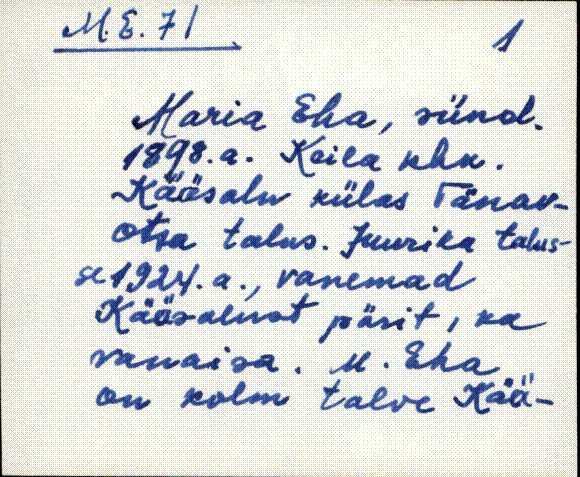 M. E. 71
1
Maria Eha, sünd.
1898. a. Keila khk.
Kääsalu külas Tänav-
otsa talus. Juurika talus-
se 1924. a., vanemad
Kääsalust pärit, ka
vanaisa. M. Eha
on kolm talve Kää-